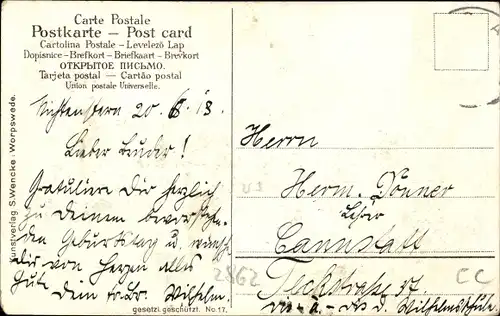 Carte Postale
Postkarte – Post card
Cartolina Postale – Levelező Lap
Dopisnice – Brefkort – Briefkaart – Brevkort
ОТКРЫТОЕ ПИСЬМО.
Tarjeta postal – Cartão postal
Union postale Universelle.
Kunstverlag S. Wencke · Worpswede.
20. 8. 13.
Lieber Bruder!
Gratuliere Dir herzlich
zu Deinem bevorstehen-
den Geburtstag u. wünsche
dir von Herzen alles
Gute dein tr. Br. Wilhelm.
gesetzl. geschützt. No. 17.
Herrn
Herm. Dönner
Cannstatt
Teckstraße 37.
d. Wilhelmsschule.
2862
CC